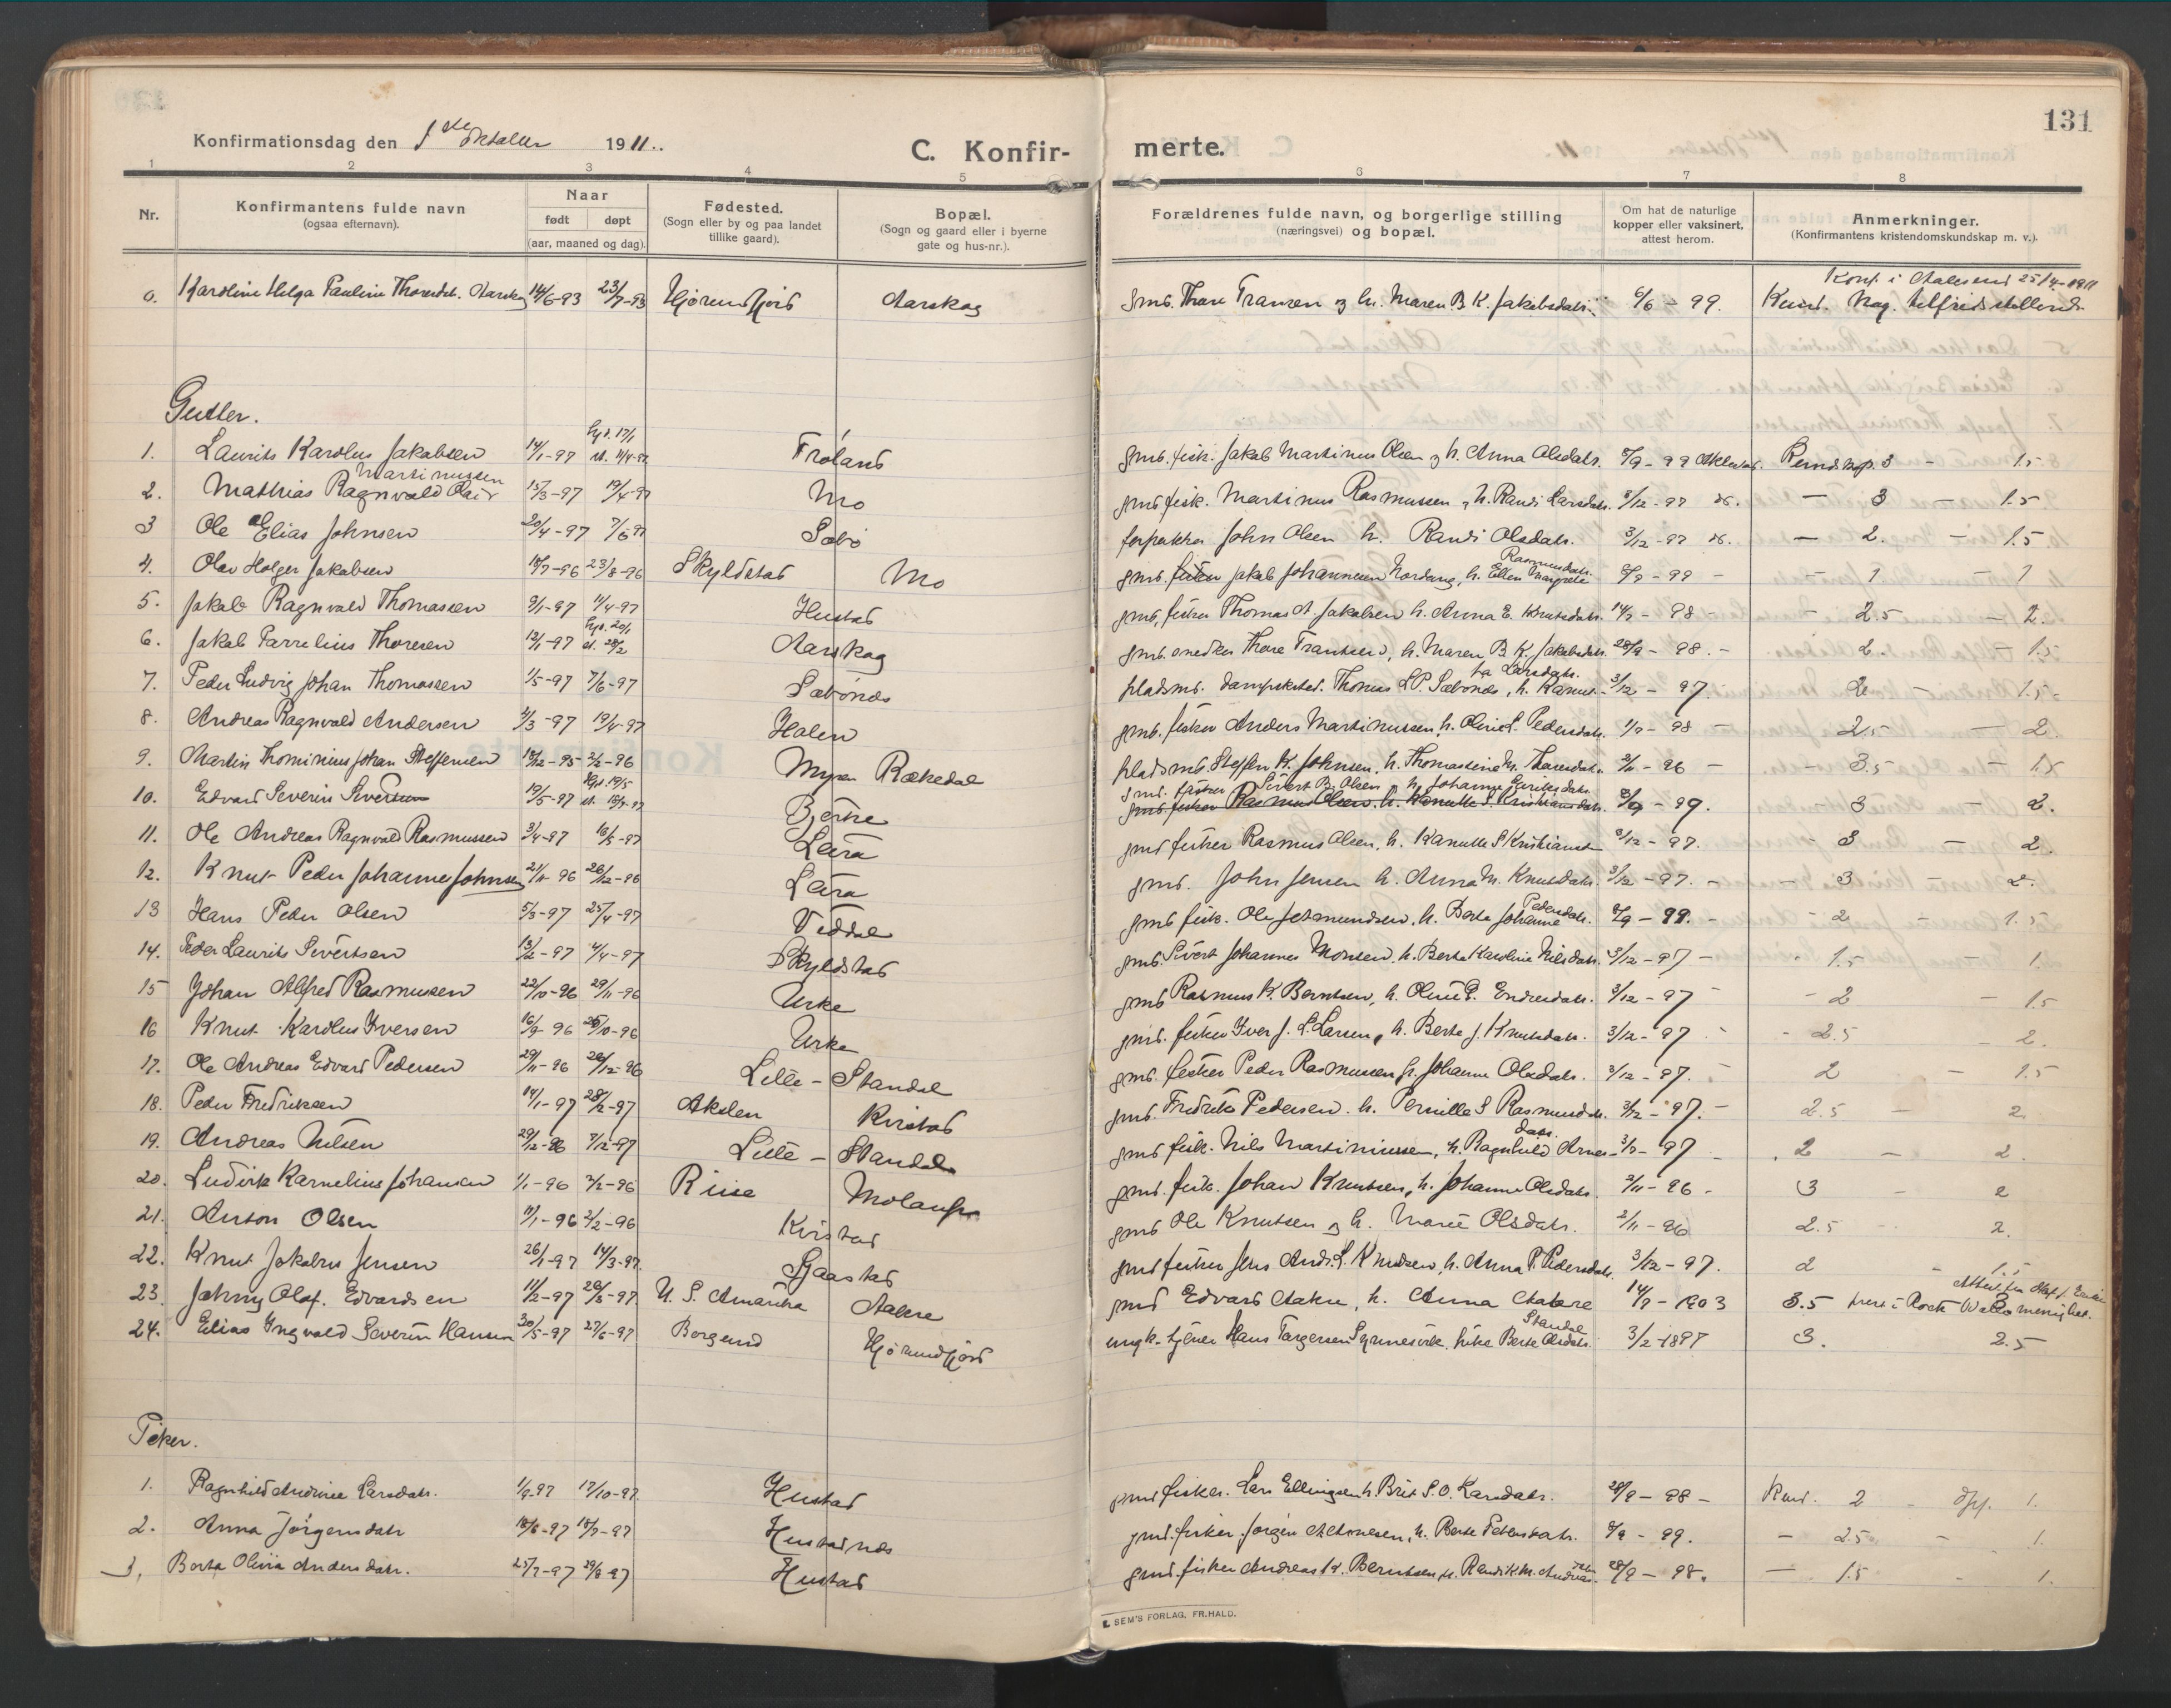 131
Konfirmationsdag den 1ste Oktober 1911.
C. Konfirmerte.
1 2 3 4 5 6 7 8
Nr.
Konfirmantens fulde navn
(ogsaa efternavn).
Naar
født døpt
(aar, maaned og dag).
Fødested.
(Sogn eller by og paa landet
tillike gaard).
Bopæl.
(Sogn og gaard eller i byerne
gate og hus-nr.).
Forældrenes fulde navn, og borgerlige stilling
(næringsvei) og bopæl.
Om hat de naturlige
kopper eller vaksinert,
attest herom.
Anmerkninger.
(Konfirmantens kristendomskundskap m. v.).
Konf. i Aalesund 25/4-1911
0. Karoline Helga Pauline Thoresdat. Aarskog 14/6-93 23/7-93 Hjørundfjord Aarskog gmd. Thore Transen og h. Maren B. K. Jakobsdatr. 6/6 - 99. Kund. Nog. tilfredsstillende
Gutter.
1. Laurits Karolus Jakobsen 14/1-97 hjd. 17/1 st. 11/4-97 Tróland gmd. fisk. Jakob Martinus Olsen og h. Anna Olsdatr. 8/9 - 99 Kundskap. 3 - 1.5
Martinussen
2. Mathias Ragnvald 15/3-97 19/4-97 Mo gmd fisk. Martinus Rasmussen, h. Randi Larsdatr. 3/12 - 97 - 3 - 1.5
3 Ole Elias Johnsen 20/4-97 7/6-97 Sæbø forpakter John Olsen h. Randi Olsdatr. 3/12 - 97 - 2. - 1.5
4. Olav Holger Jakobsen 18/7-96 23/8-96 Skyldstad Mo gmd. fisker Jakob Johannessen Nordang, h. Ellen Margrete Rasmusdatr. 8/9 - 99 - 1 - 1
5. Jakob Ragnvald Thomassen 9/1-97 11/4-97 Hustad gmd, fisker Thomas A. Jakobsen h. Anna E. Knutsdatr. 14/9 - 98 - 2.5 - 2.
6. Jakob Parrelius Thoresen 12/1-97 hjd. 20/1 st. 28/2 Aarskog gmd. snedker Thore Trantsen, h. Maren B. K. Jakobsdatr. 28/9 - 98. - 2. - 1.5
7. Peder Ludvig Johan Thomassen 1/5-97 7/6-97 Sæbónes pladsmd. Thomas L P. Sæbónes, h. Larsdatr. 3/12 - 97. 2 - 1.5
8. Andreas Ragnvald Andersen 4/3-97 19/4-97 Holen gmd. fisker Anders Martinussen, h. Oline S. Pedersdatr. 1/9 - 98 - 2.5 - 2.
9. Martin Thominius Johan Steffensen 18/12-95 2/2-96 Myren Rækedal pladsmd. Steffen K. Johnsen, h. Thomasine M. Thoresdatr. 2/11 - 96 - 3.5 - 1.5
10. Edvard Severin Sivertsen 19/5-97 hjd. 19/5 Bjørke gmd. fisker Sivert B. Olsen h. Johanne Eriksdatr. 8/9 - 99. 3 - 2.
gmd. fisker Rasmus Olsen, h. Kanutte S. Kristiansdatr.
11. Ole Andreas Ragnvald Rasmussen 3/4-97 16/5-97 Leira gmd fisker Rasmus Olsen, h. Kanutte S Kristiansd 3/12 - 97. - 3 - 2.
12. Knut Peder Johannes Johnsen 21/11-96 26/12-96 Leira gmd. John Jensen h. Anna M. Knutsdatr. 3/12 - 97. - 3 - 2.
13 Hans Peder Olsen 5/3-97 25/4-97 Viddal gmd fisk. Ole Jetmundsen, h. Berte Johanne Pedersdatr. 8/9 - 99. - 2 - 1.5
14. Peder Laurits Sivertsen 13/2-97 4/4-97 Skyldstad gmd. Sivert Johannes Monsen, h. Berte Karoline Nilsdatr. 3/12 - 97 - 1.5 - 1.
15 Johan Alfred Rasmussen 22/10-96 29/11-96 Urke gmd Rasmus K. Berntsen, h. Oline E. Endresdatr. 3/12 - 97 - 2 - 1.5
16 Knut Karolus Iversen 16/9-96 25/10-96 Urke gmd. fisker Iver J. L. Larsen, h. Berte J. Knutsdatr. 3/12 - 97 - 2.5 - 2.
17. Ole Andreas Edvard Pedersen 29/11-96 26/12-96 Lille-Standal gmd. fisker Peder Rasmussen h. Johanne Olsdatr. 3/12 - 97. 2 - 1.5
18. Peder Fredriksen 14/1-97 28/2-97 Akslen Kvistad gmd. Fredrik Pedersen. h. Pernille S Rasmusdatr. 3/12 - 97. - 2.5 - 2.
19. Andreas Nilsen 29/12-96 7/12-97 Lille-Standal gmd fisk. Nils Martinussen, h. Ragnhild Arnesdatr. 97 - 2 - 2.
20. Ludvik Karnelius Johansen 1/1-96 2/2-96 Riise Molaupen gmd. fisk. Johan Knutsen, h. Johanne Olsdatr. 2/11 - 96 - 3 - 2
21. Anton Olsen 11/1-96 2/2-96 Kvistad gmd Ole Knutsen og h. Marie Olsdatr. 2/11 - 96 2.5 - 2.
22. Knut Jakobus Jensen 26/1-97 14/3-97 Sjaastad gmd fisker Jens Andr. L. Knudsen, h. Anna P. Pedersdatr. 3/12 - 97. 2 - 1.5
23. Johny Olaf. Edvardsen 11/2-97 28/3-97 U. S. Amerika Aakre gmd Edvard Aakre, h. Anna Aakre 14/9 - 1903 3.5 prest i Rock menighet.
24. Elias Ingvald Severin Hansen 30/5-97 27/6-97 Borgund Hjørundfjord ungk. tjener Hans Torgersen Synnesvik, pike Berte Olsdatr. Standal 3/2-1897 3. 2.5
Piker.
1. Ragnhild Andrine Larsdatr. 1/9-97 17/10-97 Hustad gmd fisker. Lars Ellingsen h. Brit S. O. Karsdatr. 28/9 - 98 - Kund. 2 - Opf. 1.
2. Anna Jørgensdatr 18/6-97 18/7-97 Hustadnes gmd. fisker Jørgen h. Berte Petersdatr. 8/9 - 99. - 2.5 - 1.
3. Berta Olivia Andersdatr. 25/7-97 29/8-97 Hustad gmd. fisker Andreas K. Berntsen h. Randi K. M. 28/9 - 98. - 1.5 - 1.
E. SEM'S FORLAG, FR.HALD.